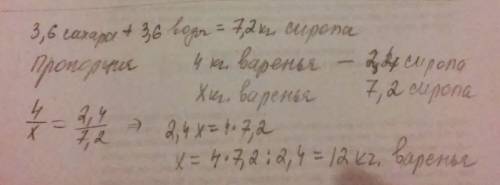 3,6 сахара + 3,6 воды = 7,2 кг. сиропа
Пропорция 4 кг. варенья — 2,4 сиропа
x кг. варенья 7,2 сиропа
4/x = 2,4/7,2 ⇒ 2,4x = 4·7,2
x = 4·7,2 : 2,4 = 12 кг. варенья